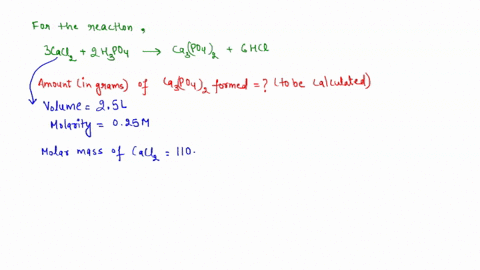 For the reaction,
3CaCl₂ + 2H₃PO₄ → Ca₃(PO₄)₂ + 6HCl
Amount (in grams) of Ca₃(PO₄)₂ formed = ? (to be calculated)
Volume = 2.5L
Molarity = 0.25M
Molar mass of CaCl₂ = 110.